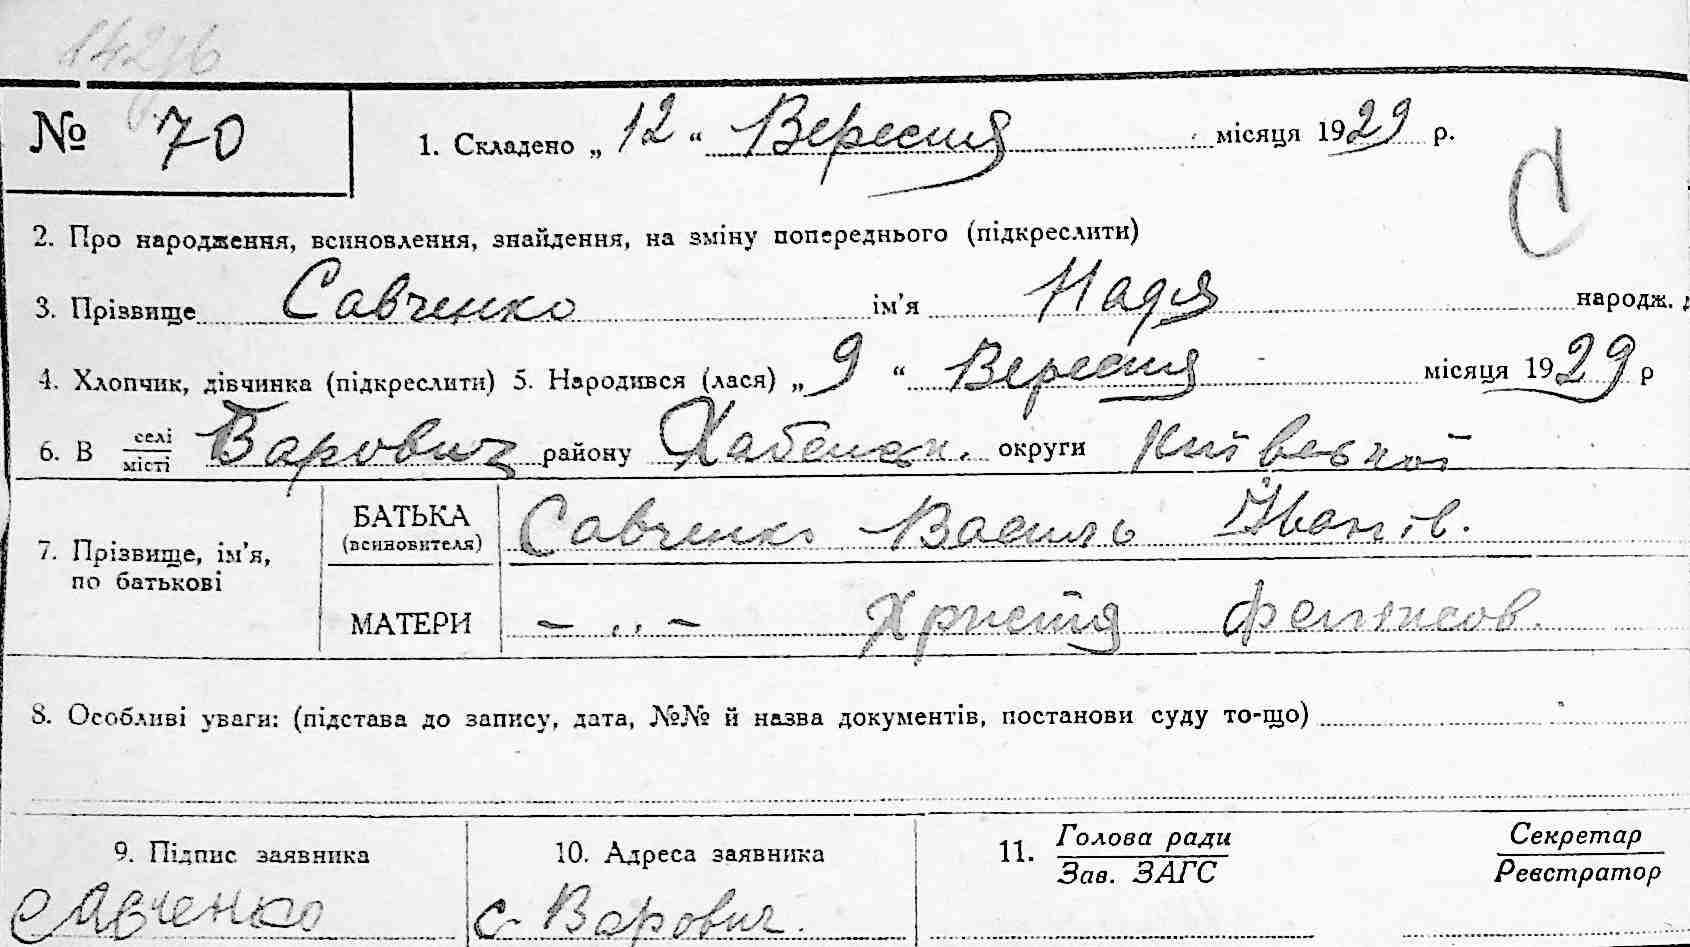 № 70
1. Складено „ 12 “ Вересня місяця 1929 р.
С
2. Про народження, всиновлення, знайдення, на зміну попереднього (підкреслити)
3. Прізвище Савченко ім'я Надя народж.
4. Хлопчик, дівчинка (підкреслити) 5. Народився (лася) „ 9 “ Вересня місяця 1929 р
6. В селі місті Варовичі району Хабенськ. округи Київської
7. Прізвище, ім'я, по батькові
БАТЬКА (всиновителя) Савченко Василь Іванів.
МАТЕРИ — „ — Христя
8. Особливі уваги: (підстава до запису, дата, №№ й назва документів, постанови суду то-що)
9. Підпис заявника
Савченко
10. Адреса заявника
с. Варовичі.
11. Голова ради
Зав. ЗАГС
Секретар
Реєстратор